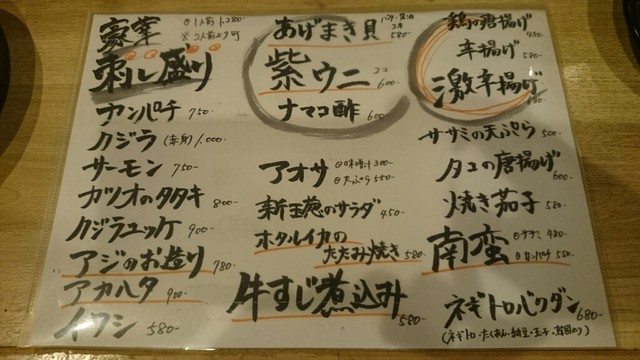 豪華 ⊖1人前 1,280-
※2人前より可
刺し盛り
カンパチ 750-
クジラ (赤身) 1,000-
サーモン 750-
カツオのタタキ 800-
クジラユッケ 900-
アジのお造り 780-
アカハタ 900-
イワシ 580-
あげまき貝 バター・醤油 2本 580-
紫ウニ 2コ 600-
ナマコ酢 600-
アオサ ⊖味噌汁 300-
⊖天ぷら 550-
新玉葱のサラダ 450-
ホタルイカの
たたみ焼き 580-
牛すじ煮込み 580-
鶏の唐揚げ 450-
辛揚げ 580-
激辛揚げ 680-
ササミの天ぷら 500-
タコの唐揚げ 600-
焼き茄子 580-
南蛮 ⊖ササミ 480-
⊖カンパチ 550-
ネギトロバクダン 680-
(ネギトロ・たくあん・納豆・玉子・韓国のり)